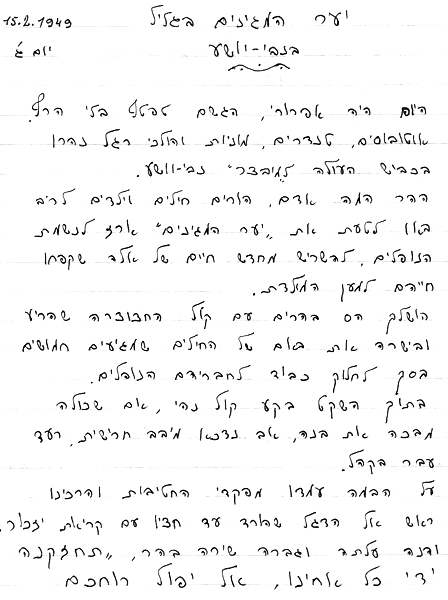 15.2.1949 יער המגינים בגליל
יום ג' בנבי-יושע
היום היה אפרורי, הגשם טפטף בלי הרף.
אוטובוסים, טנדרים, מוניות והולכי רגל נהרו
בכביש העולה ל"מיבצר" נבי-יושע.
ההר המה אדם, הורים חיילים וילדים לרוב
באו לטעת את "יער המגינים" ארז לנשמת
הנופלים, להשריש מחדש חיים של אלה שקפחו
חייהם למען המולדת.
הושלך הס בהרים עם קול החצוצרה שהריע
ובישרה את בואם של החיילים שמגיעים חמושים
בסך לחלוק כבוד לחבריהם הנופלים.
בתוך השקט בקע קול נהי, אם שכולה
מבכה את בנה, אב נדכא מיבב חרישית, רעד
עבר בקהל.
על הבמה עמדו מפקדי החטיבות והרכינו
ראש אל הדגל שהורד עד חציו עם קריאת יזכור,
והנה עלתה וגברה שירה בהר, "תחזקנה
ידי כל אחינו, אל יפול רוחכם